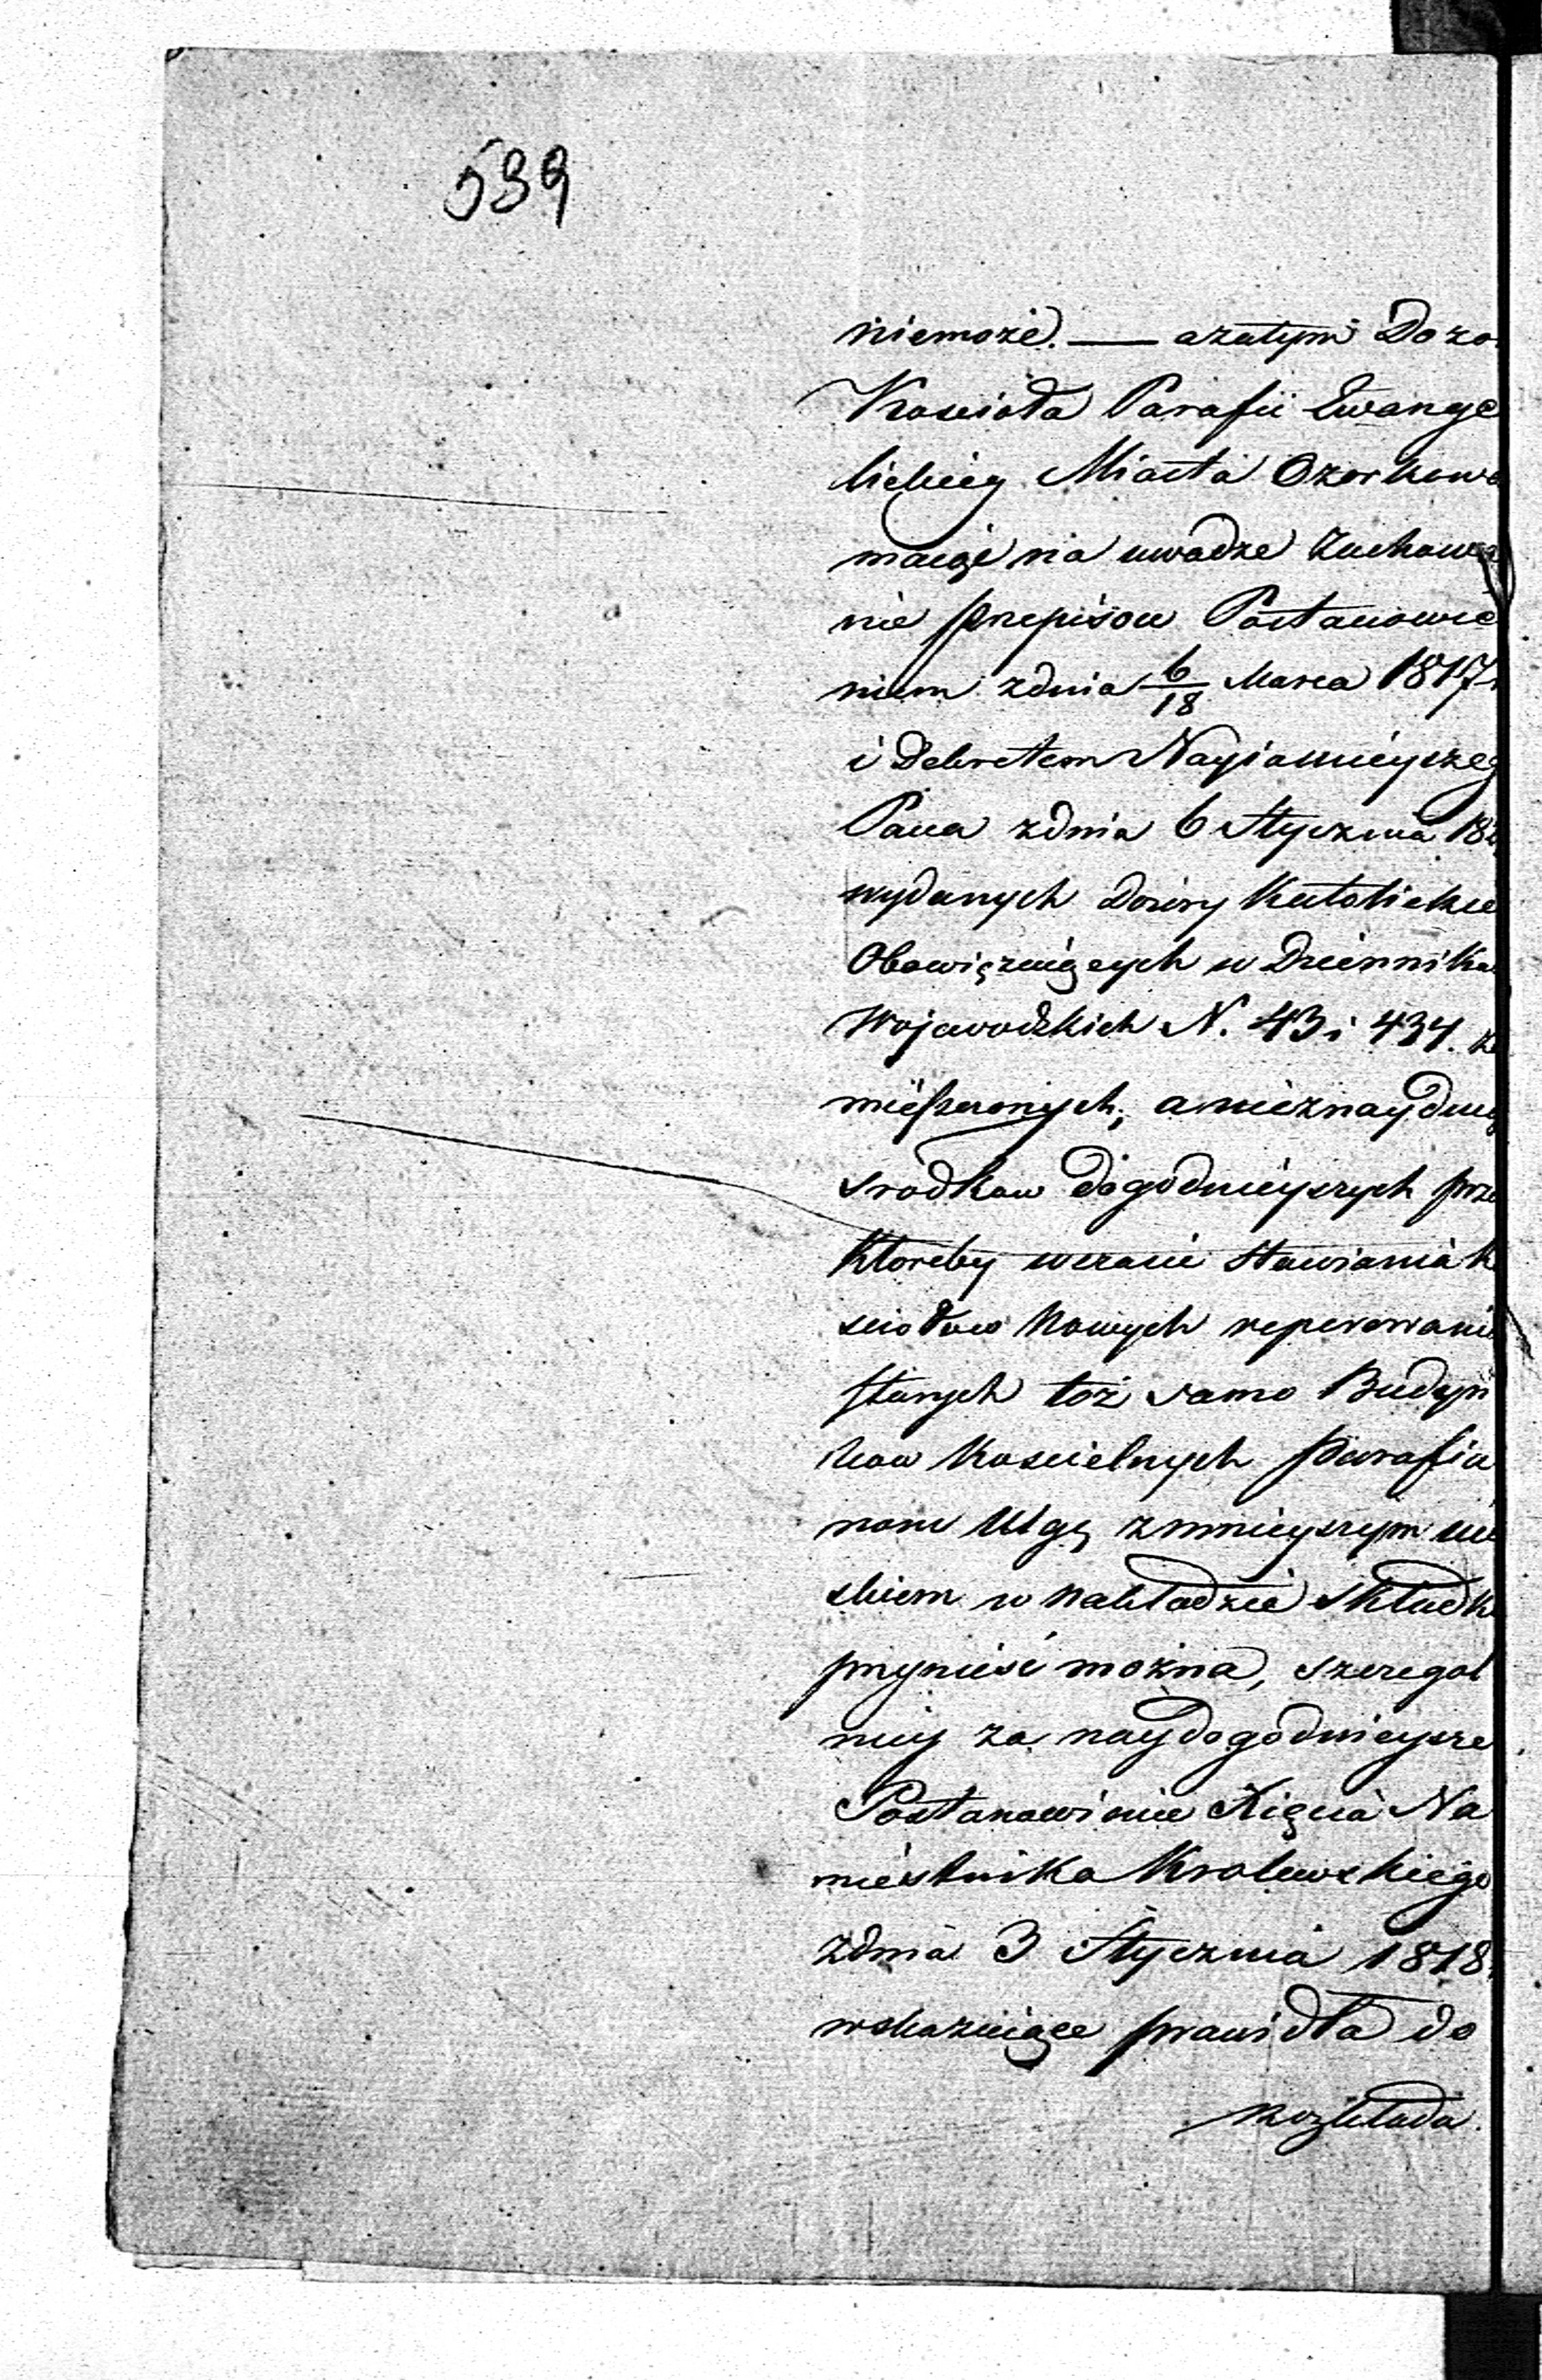 539
niemoże. — azatym Dozo
Koscioła Parafii Ewange
lickiey Miasta Ozorkowa
maiąc na uwadze zachowa
nie przepisow Postanowie
niem zdnia 6/18 Marca 1817
i Dekretem Nayiasnieyszeg
Pana zdnia 6 Stycznia 18
wydanych Dozory Katolickie
Obowięzuiących w Dziennika
Wojewodzkich N. 43 i 434. za
mieszczonych, a nieznayduią
srodkow dogodnieyszych prze
ktoreby wczasie stawiania k
sciołow Nowych reperowanie
starych toż samo Budyn
kow Koscielnych parafia
nom Ulgę zmnieyszym uci
skiem w nakładzie składk
przynieść można, szczegol
niey za naydogodnieysze
Postanowienie Xięcia Na
miestnika Krolewskiego
zdnia 3 Stycznia 1818.
wskazuiące prawidła do
rozkłada